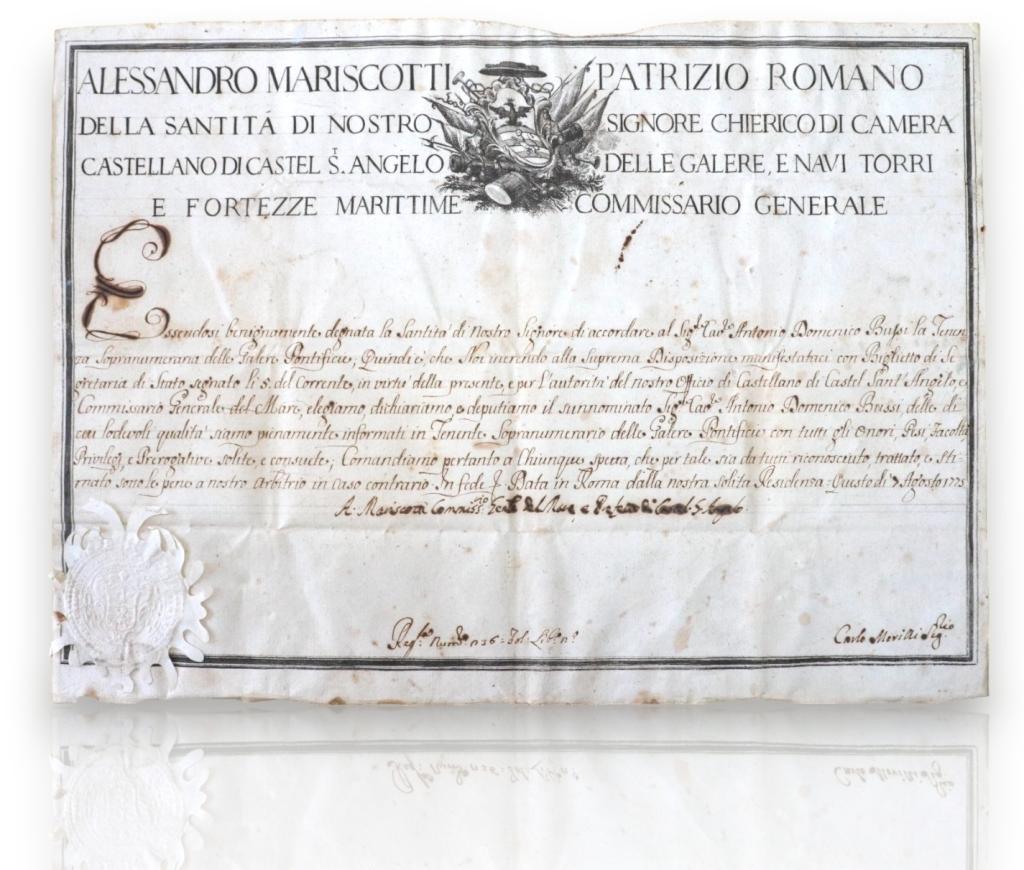 ALESSANDRO MARISCOTTI PATRIZIO ROMANO
DELLA SANTITÁ DI NOSTRO SIGNORE CHIERICO DI CAMERA
CASTELLANO DI CASTEL S.T ANGELO DELLE GALERE, E NAVI TORRI
E FORTEZZE MARITTIME COMMISSARIO GENERALE
Essendosi benignamente degnata la Santità di Nostro Signore di accordare al Sig.r Cav.r Antonio Domenico Bussi la Tenen
za Sopranumeraria delle Galere Pontificie; Quindi è, che Noi inerendo alla Suprema Disposizione manifestataci con Biglietto di Se
gretaria di Stato segnato li 5. del Corrente, in virtù della presente, e per l'autorità del nostro Officio di Castellano di Castel Sant'Angelo, e
Commissario Generale del Mare, eleggiamo, dichiariamo, e deputiamo il sunnominato Sig.r Cav.r Antonio Domenico Bussi, delle di
cui lodevoli qualità siamo pienamente informati in Tenente Sopranumerario delle Galere Pontificie con tutti gli Onori, Pesi, Facoltà
Privilegj, e Prerogative solite, e consuete; Comandiamo pertanto a Chiunque spetta, che per tale sia da tutti riconosciuto, trattato, e sti
mato sotto le pene a nostro arbitrio in caso contrario. In fede &. Data in Roma dalla nostra solita Residenza Questo dì 7 Agosto 1775
A. Mariscotti Commiss.o Gen.le del Mare, e di Castel S. Angelo
Reg.to Fol.
Carlo Seg.rio